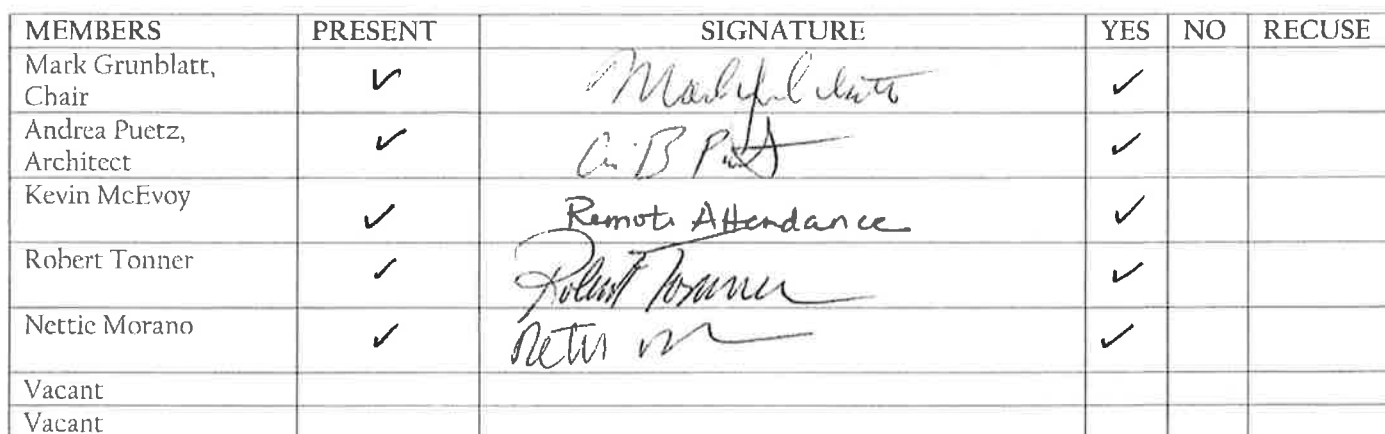 MEMBERS PRESENT SIGNATURE YES NO RECUSE
Mark Grunblatt,
Chair ✓ ✓
Andrea Puetz,
Architect ✓ ✓
Kevin McEvoy ✓ Remote Attendance ✓
Robert Tonner ✓ Robert Tonner ✓
Nettie Morano ✓ ✓
Vacant
Vacant